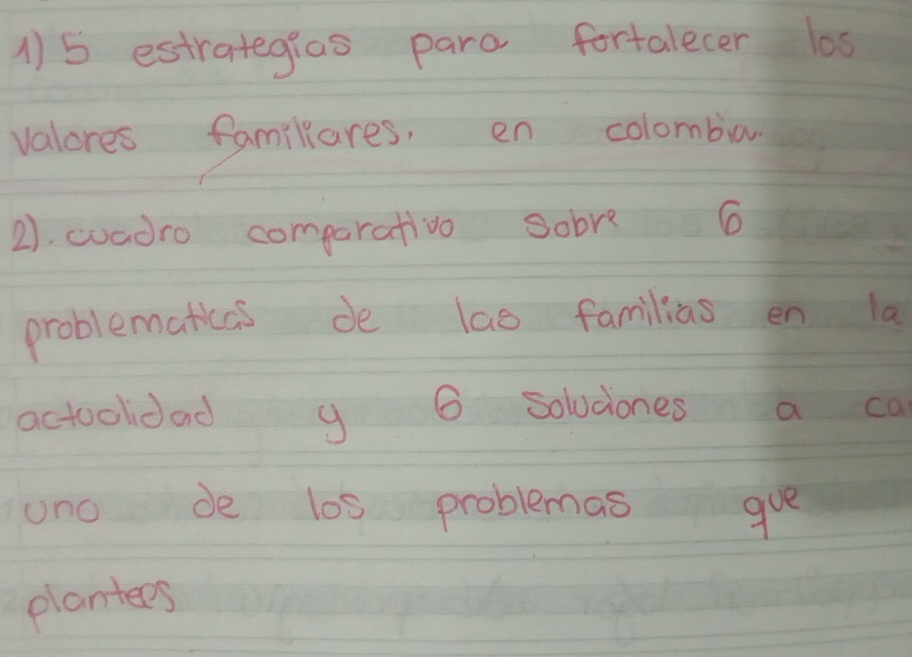 1) 5 estrategias para fortalecer los
valores familiares, en colombia.
2). cuadro comparativo sobre 6
problematicas de las familias en la
actualidad y 6 soluciones a ca
uno de los problemas que
plantees